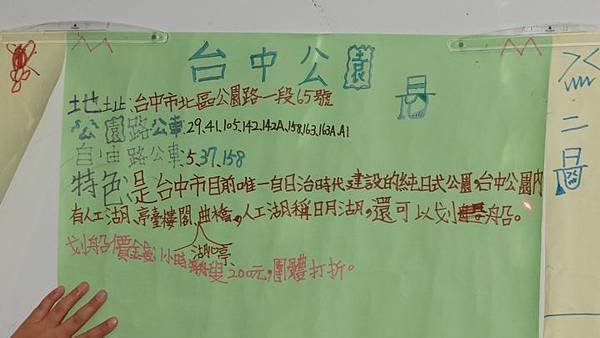 台中公園
地址:台中市北區公園路一段65號
公園路公車:29.41.105.142.142A.158.163.163A.A1
自由路公車:5.37.158
特色:是台中市目前唯一自日治時代建設的純日式公園,台中公園內
有人工湖、亭臺樓閣、曲橋,人工湖稱日月湖,還可以划船。
湖心亭
划船價錢:1小時雙槳200元,團體打折。
二